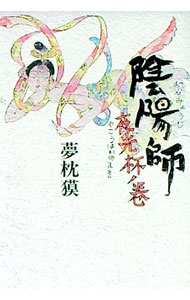 陰陽師
夜光杯ノ巻
夢枕獏